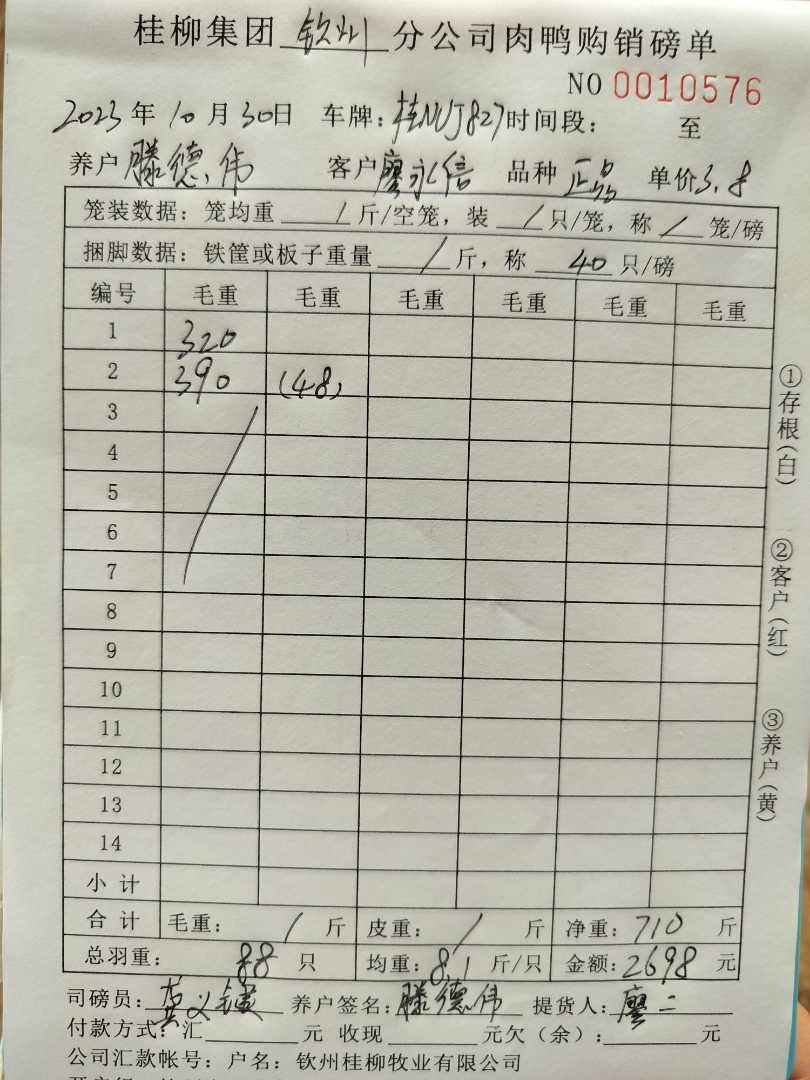 桂柳集团 钦州 分公司肉鸭购销磅单
NO 0010576
2023 年 10 月 30 日 车牌: 桂NUJ827 时间段: 至
养户 滕德伟 客户 廖永信 品种 正品 单价 3.8
笼装数据: 笼均重 / 斤/空笼, 装 / 只/笼, 称 / 笼/磅
捆脚数据: 铁筐或板子重量 / 斤, 称 40 只/磅
编号 毛重 毛重 毛重 毛重 毛重 毛重
1 320
2 390 (48)
3
4
5
6
7
8
9
10
11
12
13
14
小计
合计 毛重: / 斤 皮重: / 斤 净重: 710 斤
总羽重: 88 只 均重: 8.1 斤/只 金额: 2698 元
司磅员: 养户签名: 滕德伟 提货人: 廖二
付款方式: 汇 元 收现 元欠(余): 元
公司汇款帐号: 户名: 钦州桂柳牧业有限公司
①存根(白)
②客户(红)
③养户(黄)